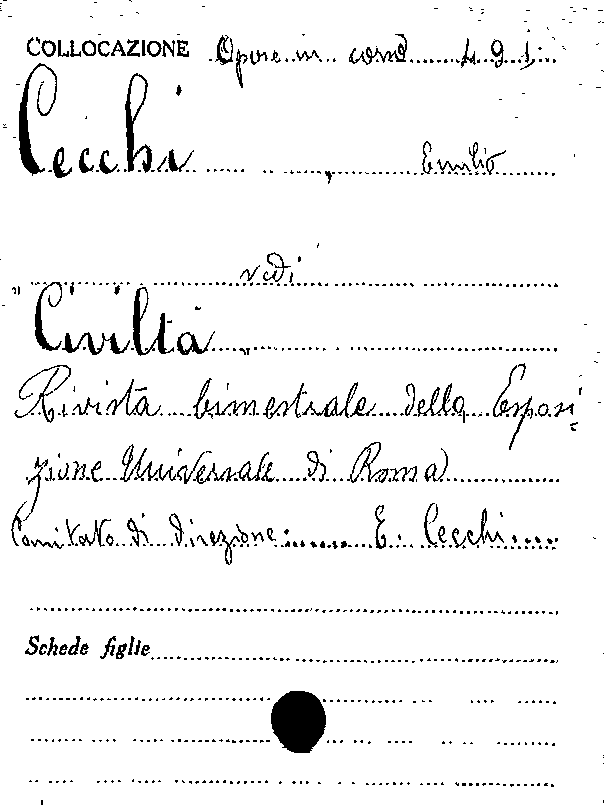 COLLOCAZIONE Opere in corso 491
Cecchi, Emilio
vedi
"Civiltà"
Rivista bimestrale della Esposi-
zione Universale di Roma
Comitato di direzione:...... E. Cecchi....
Schede figlie